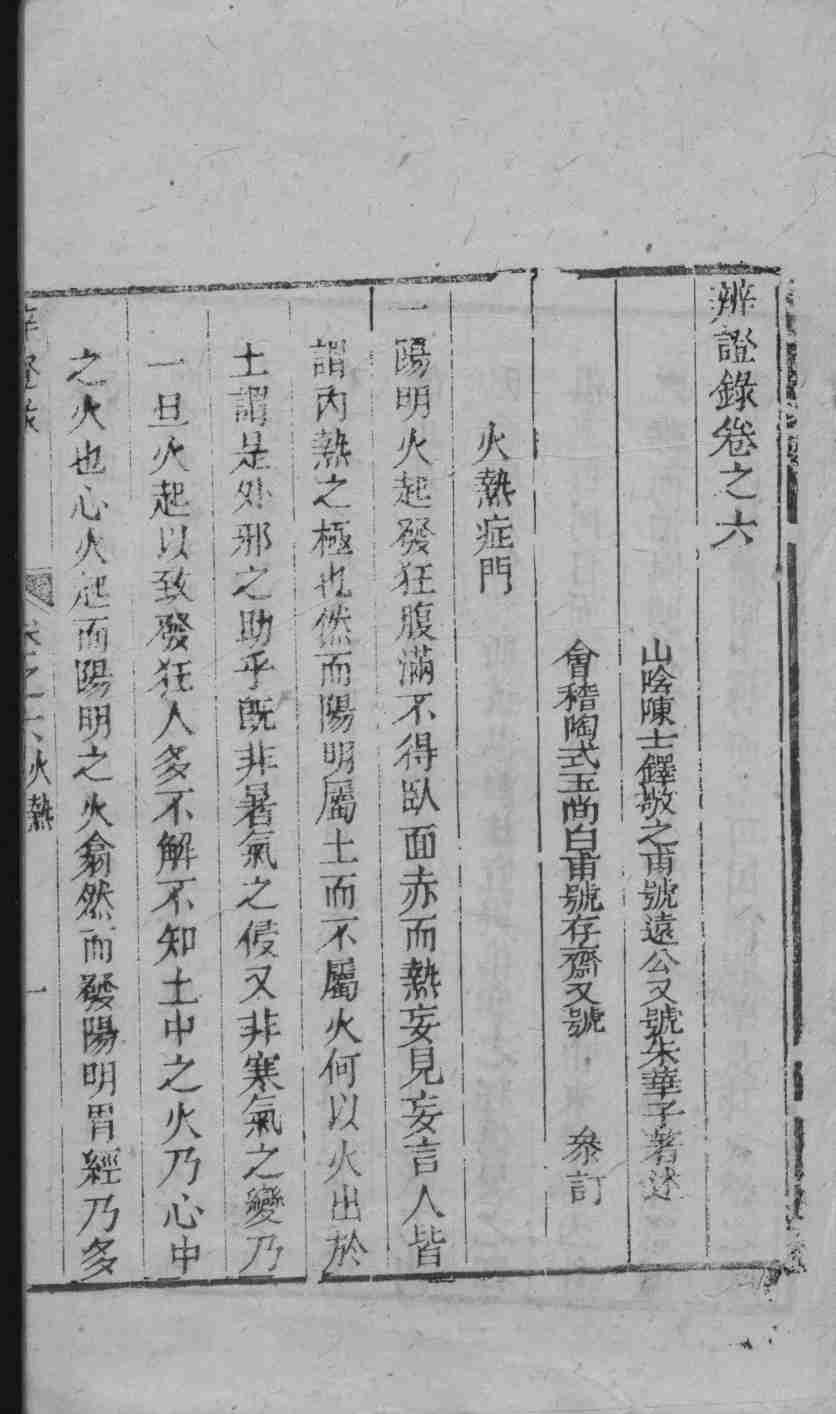 辨證錄卷之六
山陰陳士鐸敬之甫號遠公又號朱華子著述
會稽陶式玉尚白甫號存齋又號　叅訂
火熱症門
一陽明火起發狂腹滿不得臥面赤而熱妄見妄言人皆
謂內熱之極也然而陽明屬土而不屬火何以火出於
土謂是外邪之助乎既非暑氣之侵又非寒氣之變乃
一旦火起以致發狂人多不解不知土中之火乃心中
之火也心火起而陽明之火翕然而發陽明胃經乃多
辨證錄　卷之六火熱　一